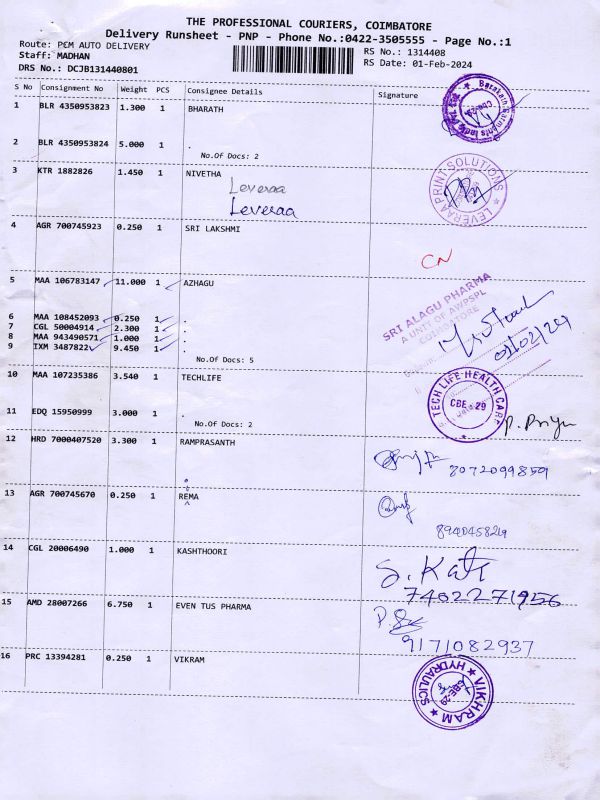 THE PROFESSIONAL COURIERS, COIMBATORE
Delivery Runsheet - PNP - Phone No.:0422-3505555 - Page No.:1
Route: PCM AUTO DELIVERY
Staff: MADHAN
DRS No.: DCJB131440801
RS No.: 1314408
RS Date: 01-Feb-2024
S No Consignment No Weight PCS Consignee Details Signature
1 BLR 4350953823 1.300 1 BHARATH
2 BLR 4350953824 5.000 1 .
No.Of Docs: 2
3 KTR 1882826 1.450 1 NIVETHA
Leveraa
Leveraa
LEVERAAPRINT SOLUTIONS
4 AGR 700745923 0.250 1 SRI LAKSHMI
CN
5 MAA 106783147 11.000 1 AZHAGU
SRI ALAGU PHARMA
A UNIT OF AWPSPL
COIMBATORE
01/02/24
6 MAA 108452093 0.250 1 .
7 CGL 50004914 2.300 1 .
8 MAA 943490571 1.000 1 .
9 IXM 3487822 9.450 1 .
No.Of Docs: 5
10 MAA 107235386 3.540 1 TECHLIFE
TECH LIFE HEALTH CARE
CBE 29
11 EDQ 15950999 3.000 1 .
No.Of Docs: 2
P. Priya
12 HRD 7000407520 3.300 1 RAMPRASANTH
8072099859
13 AGR 700745670 0.250 1 REMA
14 CGL 20006490 1.000 1 KASHTHOORI
7402271956
15 AMD 28007266 6.750 1 EVEN TUS PHARMA
9171082937
16 PRC 13394281 0.250 1 VIKRAM
VIKHRAM HYDRAULICS
CBE-29